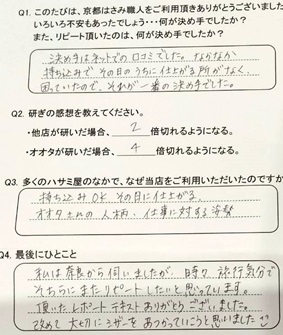 Q1. このたびは、京都はさみ職人をご利用頂きありがとうございました
いろいろ不安もあったでしょう・・・何が決め手でしたか？
また、リピート頂いたのは、何が決め手でしたか？
決め手はネットでの口コミでした。なかなか
持ち込みで その日のうちに仕上がる所がなく、
困っていたので、それが一番の決め手でした。
Q2. 研ぎの感想を教えてください。
・他店が研いだ場合、 2 倍切れるようになる。
・オオタが研いだ場合、 4 倍切れるようになる。
Q3. 多くのハサミ屋のなかで、なぜ当店をご利用いただいたのですか
持ち込みOK その日に仕上がる。
オオタさんの人柄、仕事に対する姿勢
Q4. 最後にひとこと
私は奈良から伺いましたが、時々 旅行気分で
そちらにまたリピートしたいと思っています。
頂いたレポート テキストありがとうございました。
改めて 大切にシザーをあつかっていこうと思いました